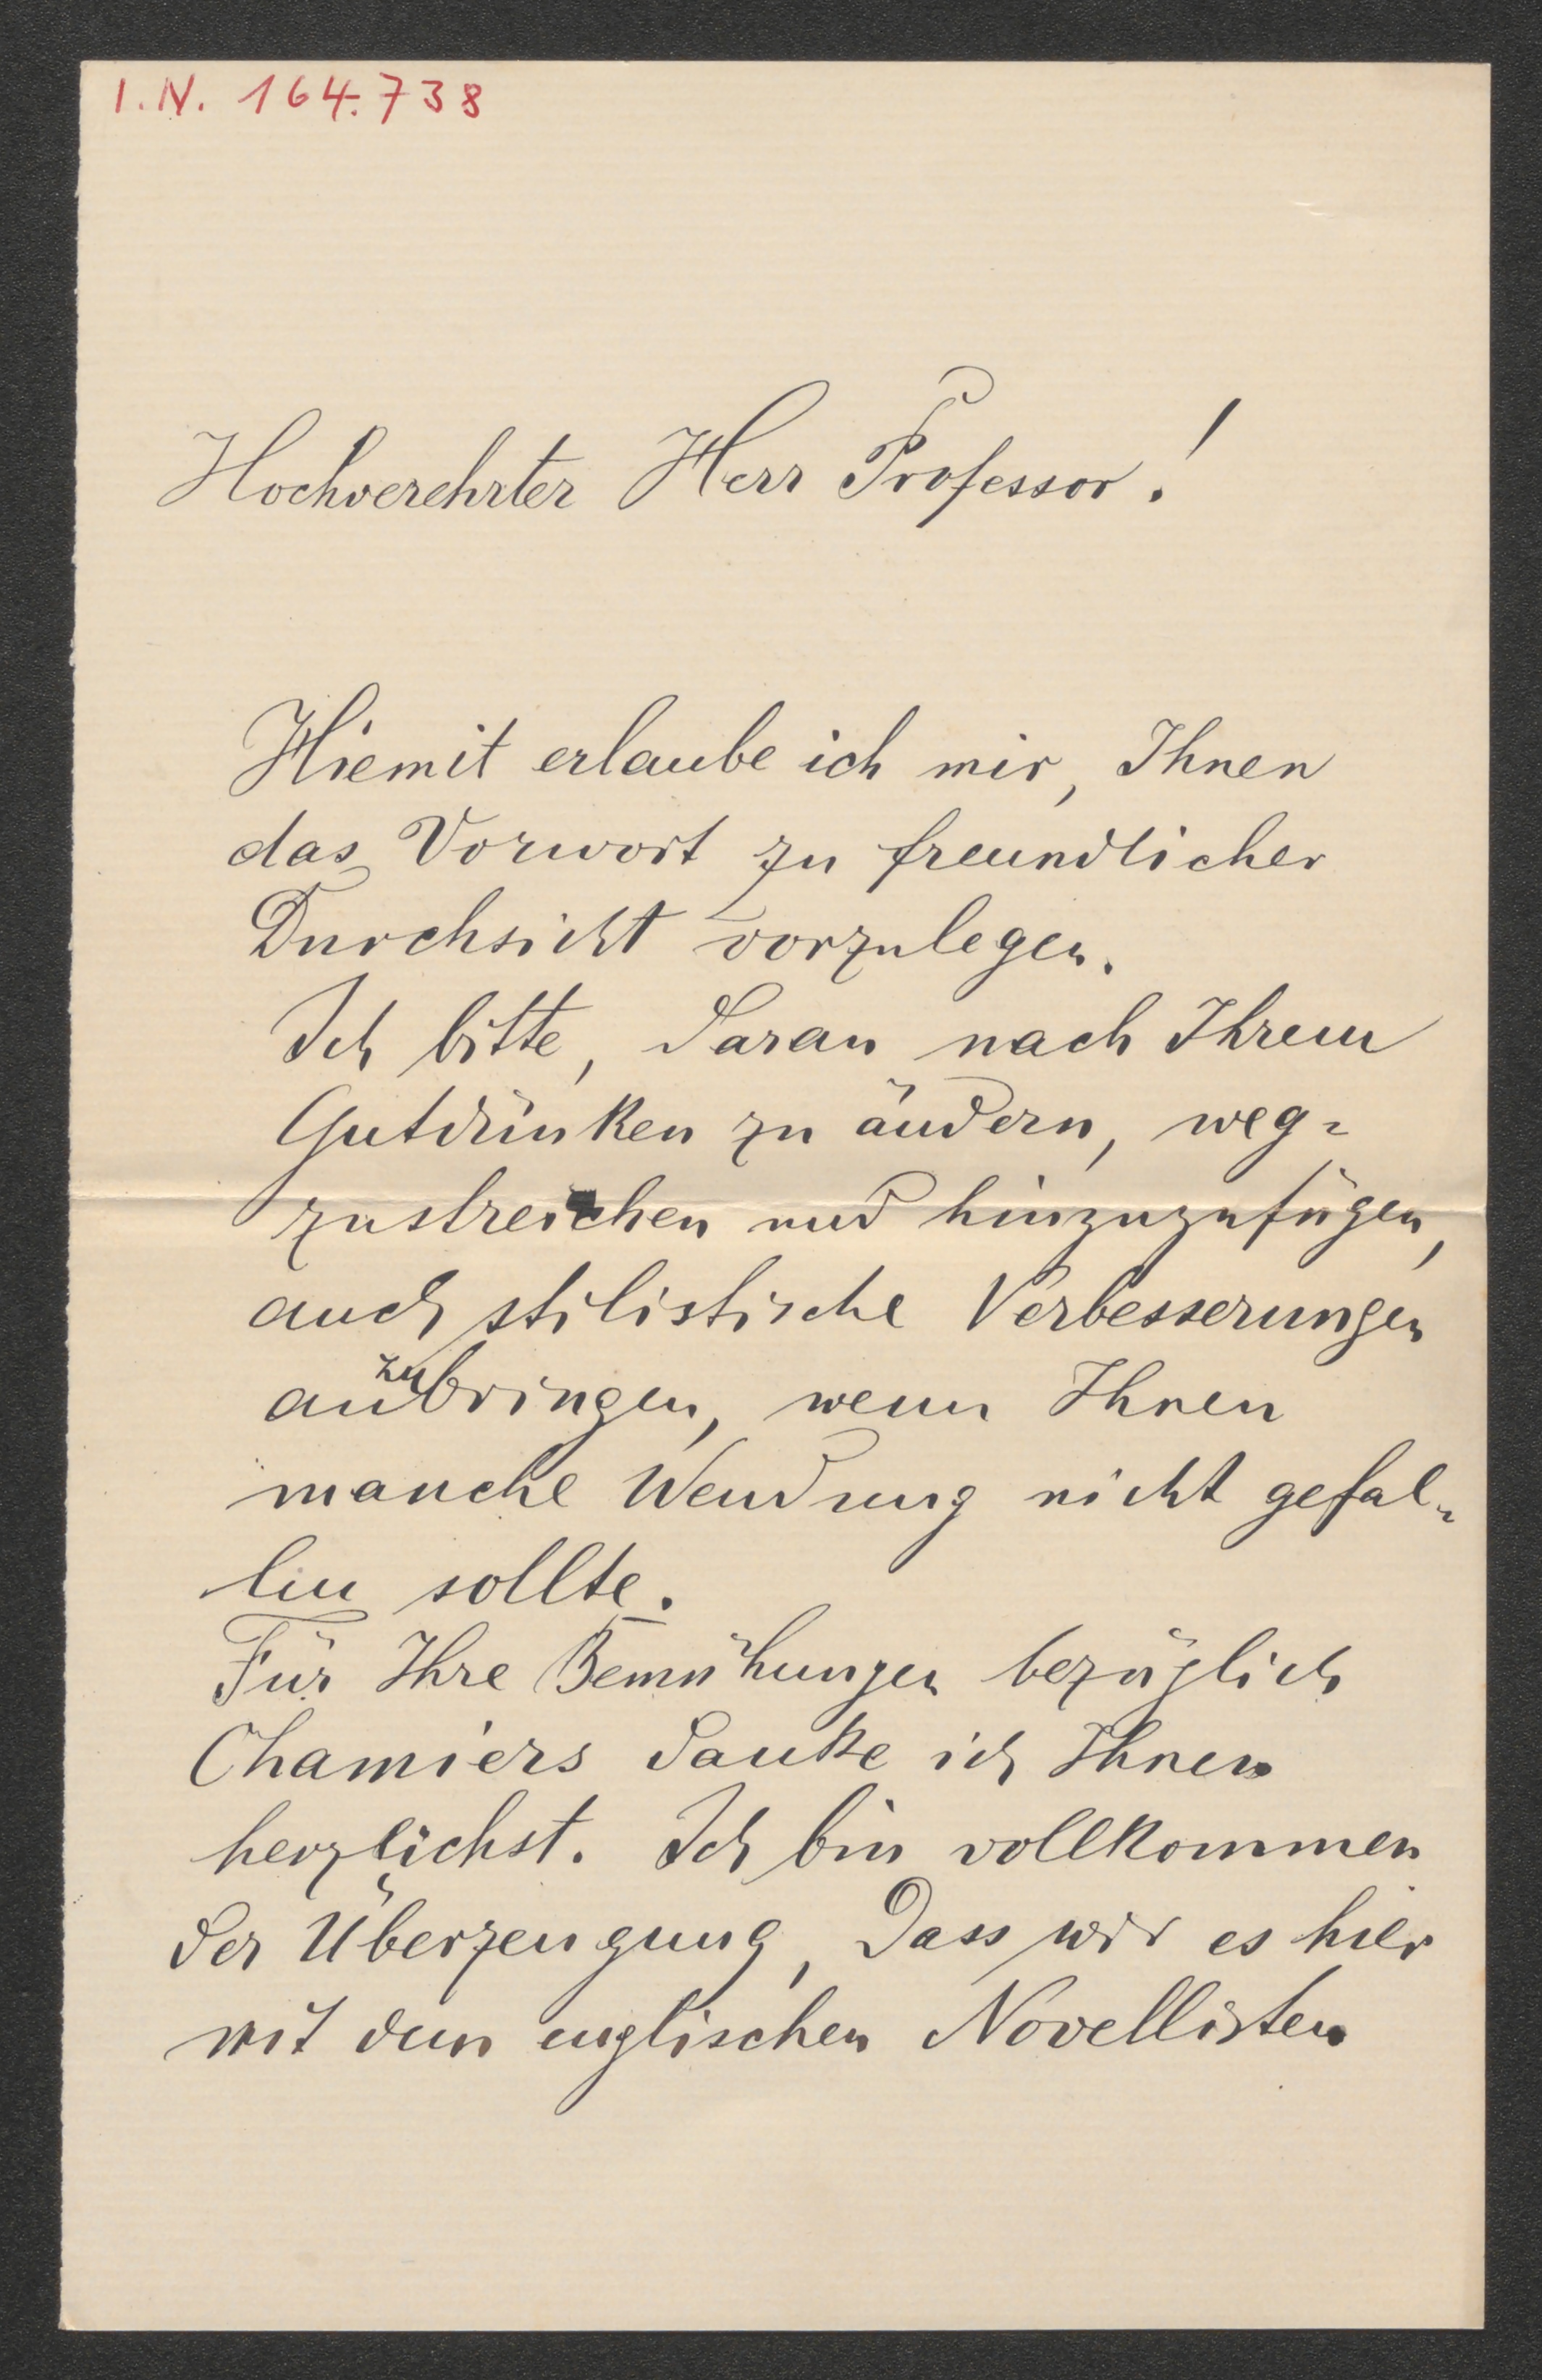 I.N. 164.738
Hochverehrter Herr Professor!
Hiemit erlaube ich mir, Ihnen
das Vorwort zu freundlicher
Durchsicht vorzulegen.
Ich bitte, daran nach Ihrem
Gutdünken zu ändern, weg-
zustreichen und hinzuzufügen,
auch stilistische Verbesserungen
anzubringen, wenn Ihnen
manche Wendung nicht gefal-
len sollte.
Für Ihre Bemühungen bezüglich
Chamiers danke ich Ihnen
herzlichst. Ich bin vollkommen
der Überzeugung, dass wir es hier
mit dem englischen Novellisten